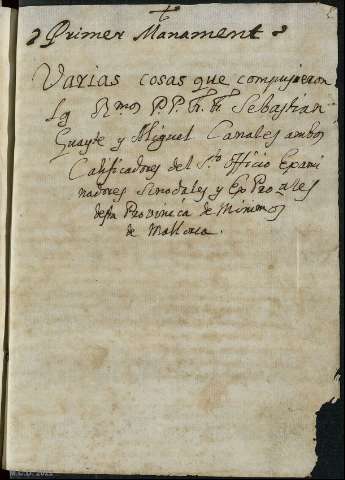 Primer Manament
Varias cosas que compusieron
los Rmos P.P. Fr. Fr. Sebastian
Guayte y Miguel Canales ambos
Calificadores del Sto Officio Exami
nadores Sinodales y Ex Proales
desta Provinica de Minimos
de Mallorca.